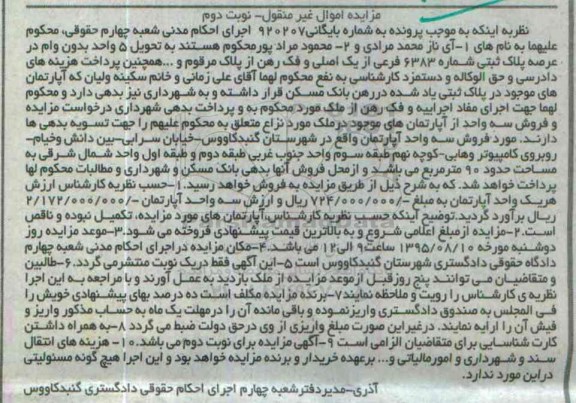 مزایده اموال غیر منقول- نوبت دوم
نظربه اینکه به موجب پرونده به شماره بایگانی ۹۲۰۲۰۷ اجرای احکام مدنی شعبه چهارم حقوقی، محکوم
علیهما به نام های ۱-آی ناز محمد مرادی و ۲- محمود مراد پورمحکوم هستند به تحویل ۵ واحد بدون وام در
عرصه پلاک ثبتی شماره ۶۳۸۳ فرعی از یک اصلی و فک رهن از پلاک مرقوم و ...همچنین پرداخت هزینه های
دادرسی و حق الوکاله و دستمزد کارشناسی به نفع محکوم لهما آقای علی زمانی و خانم سکینه ولیان که آپارتمان
های موجود در پلاک ثبتی یاد شده دررهن بانک مسکن قرار داشته و به شهرداری نیز بدهی دارد و محکوم
لهما جهت اجرای مفاد اجراییه و فک رهن از ملک مورد محکوم به و پرداخت بدهی شهرداری درخواست مزایده
و فروش سه واحد از آپارتمان های موجود درملک مورد نزاع متعلق به محکوم علیهم را جهت تسویه بدهی ها
دارند. مورد فروش سه واحد آپارتمان واقع در شهرستان گنبدکاووس-خیابان سرابی-بین دانش وخیام-
روبروی کامپیوتر وهابی-کوچه نهم طبقه سوم واحد جنوب غربی طبقه دوم و طبقه اول واحد شمال شرقی به
مساحت حدود ۹۰ مترمربع می باشد و ازمحل فروش آنها بدهی بانک مسکن و شهرداری و مطالبات محکوم لها
پرداخت خواهد شد. که به شرح ذیل از طریق مزایده به فروش خواهد رسید.۱-حسب نظریه کارشناس ارزش
هریک واحد آپارتمان به مبلغ -/۷۲۴/۰۰۰/۰۰۰ ریال و ارزش سه واحد آپارتمان -/۲/۱۷۲/۰۰۰/۰۰۰
ریال برآورد گردید.توضیح اینکه حسب نظریه کارشناس،آپارتمان های مورد مزایده، تکمیل نبوده و ناقص
است.۲-مزایده ازمبلغ اعلامی شروع و به بالاترین قیمت پیشنهادی فروخته می شود.۳-موعد مزایده روز
دوشنبه مورخه ۱۳۹۵/۰۸/۱۰ ساعت۹ الی۱۲ می باشد.۴-مکان مزایده دراجرای احکام مدنی شعبه چهارم
دادگاه حقوقی دادگستری شهرستان گنبدکاووس است ۵-این آگهی فقط دریک نوبت منتشرمی گردد.۶-طالبین
و متقاضیان می توانند پنج روزقبل ازموعد مزایده از ملک بازدید به عمل آورند و با مراجعه به این اجرا
نظریه ی کارشناس را رویت و ملاحظه نمایند۷-برنده مزایده مکلف است ده درصد بهای پیشنهادی خویش را
فی المجلس به صندوق دادگستری واریزنموده و باقی مانده آن را درمهلت یک ماه به حساب مذکور واریز و
فیش آن را ارایه نمایند. درغیراین صورت مبلغ واریزی از وی درحق دولت ضبط می گردد ۸-به همراه داشتن
کارت شناسایی برای متقاضیان الزامی است ۹-آگهی مزایده برای نوبت دوم می باشد.۱۰- هزینه های انتقال
سند و شهرداری و امورمالیاتی و... برعهده خریدار و برنده مزایده خواهد بود و این اجرا هیچ گونه مسئولیتی
دراین مورد ندارد.
آذری-مدیردفترشعبه چهارم اجرای احکام حقوقی دادگستری گنبدکاووس